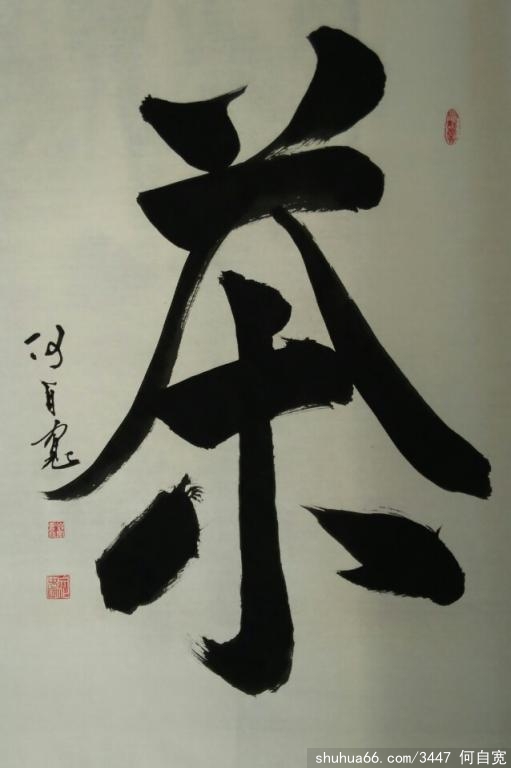 茶
何自寬
shuhua66.com/3447 何自宽